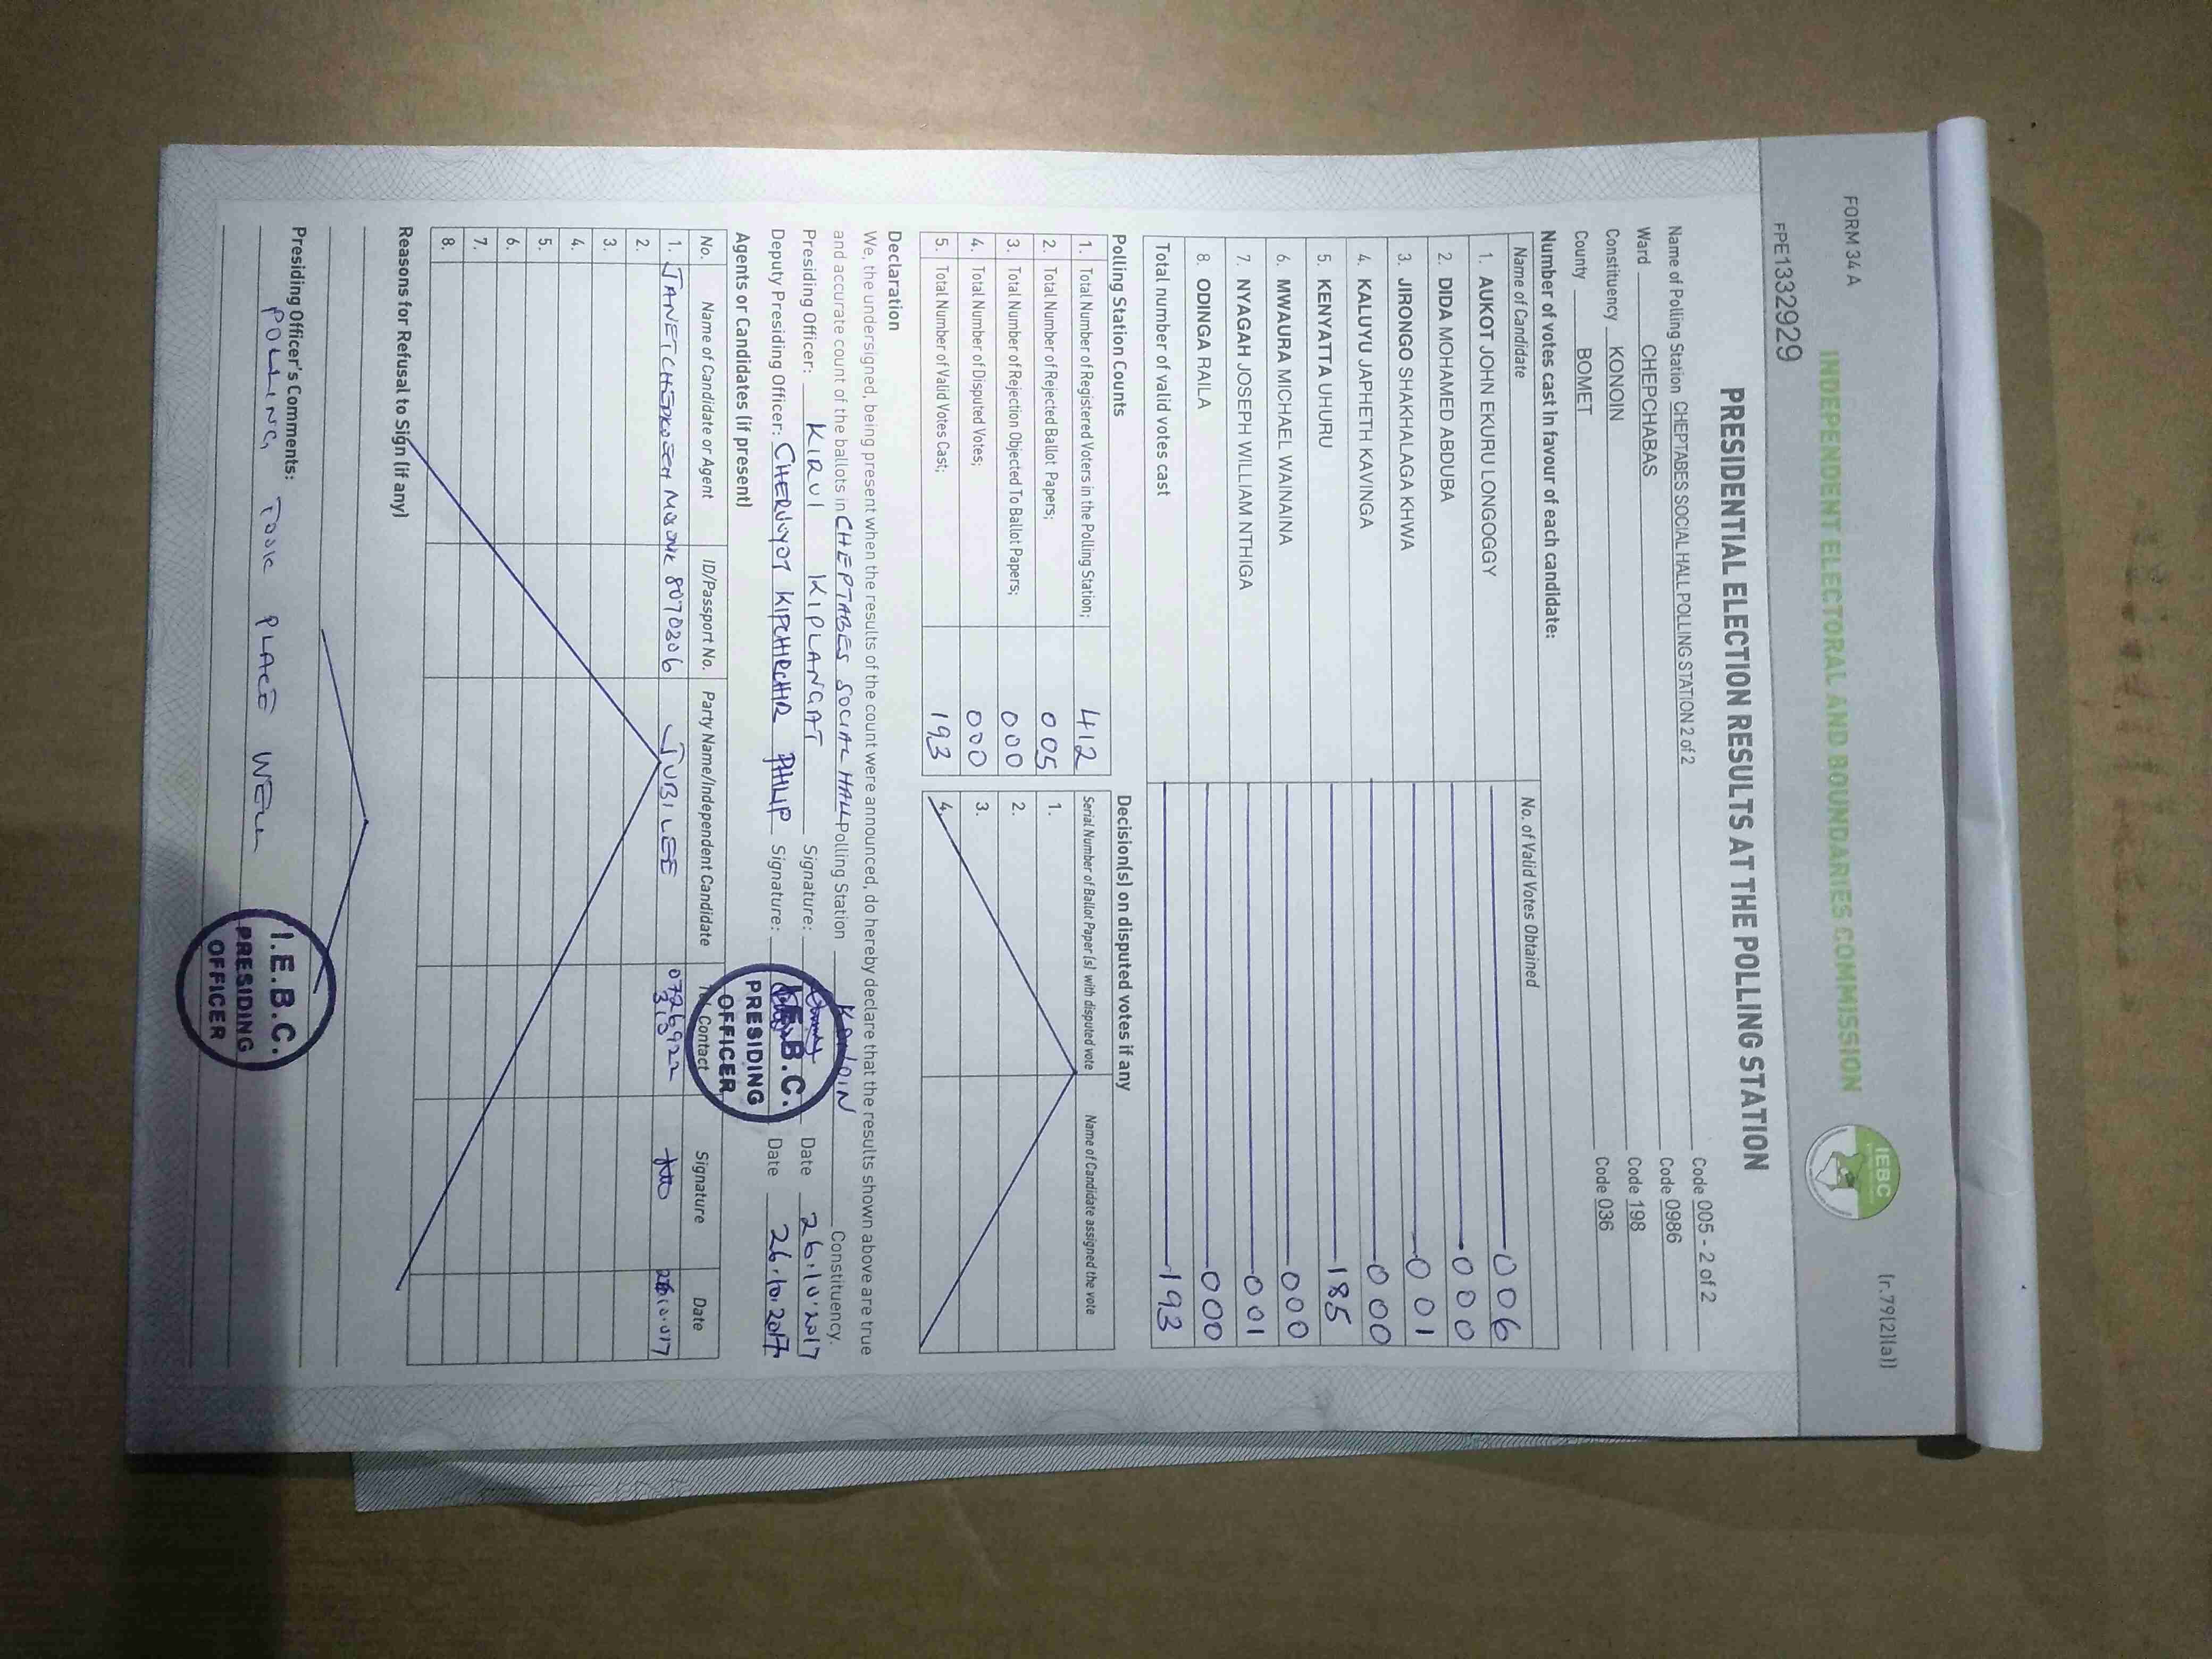 FORM 34 A
(r.79(2)(a))
INDEPENDENT ELECTORAL AND BOUNDARIES COMMISSION
IEBC
FPE1332929
PRESIDENTIAL ELECTION RESULTS AT THE POLLING STATION
Name of Polling Station CHEPTABES SOCIAL HALL POLLING STATION 2 of 2 Code 005 - 2 of 2
Ward CHEPCHABAS Code 0986
Constituency KONOIN Code 198
County BOMET Code 036
Number of votes cast in favour of each candidate:
Name of Candidate No. of Valid Votes Obtained
1. AUKOT JOHN EKURU LONGOGGY 006
2. DIDA MOHAMED ABDUBA 000
3. JIRONGO SHAKHALAGA KHWA 001
4. KALUYU JAPHETH KAVINGA 000
5. KENYATTA UHURU 185
6. MWAURA MICHAEL WAINAINA 000
7. NYAGAH JOSEPH WILLIAM NTHIGA 001
8. ODINGA RAILA 000
Total number of valid votes cast 193
Polling Station Counts
1. Total Number of Registered Voters in the Polling Station; 412
2. Total Number of Rejected Ballot Papers; 005
3. Total Number of Rejection Objected To Ballot Papers; 000
4. Total Number of Disputed Votes; 000
5. Total Number of Valid Votes Cast; 193
Decision(s) on disputed votes if any
Serial Number of Ballot Paper (s) with disputed vote Name of Candidate assigned the vote
1.
2.
3.
4.
Declaration
We, the undersigned, being present when the results of the count were announced, do hereby declare that the results shown above are true
and accurate count of the ballots in CHEPTABES SOCIAL HALL Polling Station KONOIN Constituency.
Presiding Officer: KIRUI KIPLANGAT Signature: Date 26.10.2017
Deputy Presiding Officer: CHERUIYOT KIPCHIRCHIR PHILIP Signature: Date 26.10.2017
I.E.B.C.
PRESIDING
OFFICER
Agents or Candidates (if present)
No. Name of Candidate or Agent ID/Passport No. Party Name/Independent Candidate Contact Signature Date
1. JANET CHEPKOECH 8070206 JUBILEE
2.
3.
4.
5.
6.
7.
8.
Reasons for Refusal to Sign (if any)
Presiding Officer's Comments:
POLLING TOOK PLACE WELL
I.E.B.C.
PRESIDING
OFFICER